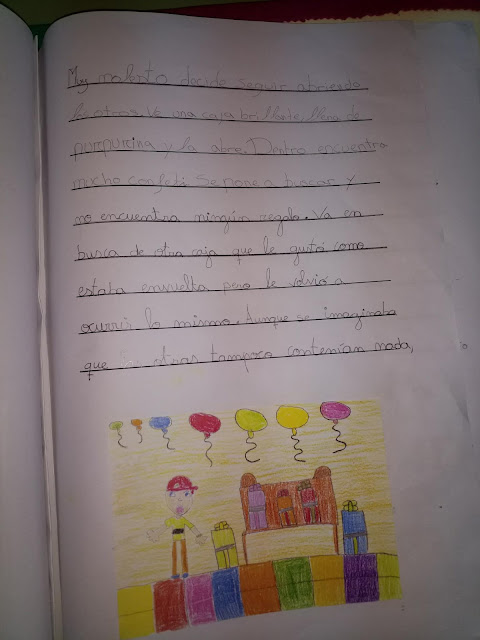 Muy molesto decide seguir abriendo
los otros. Ve una caja brillante, llena de
purpurina y la abre. Dentro encuentra
mucho confeti. Se pone a buscar y
no encuentra ningún regalo. Va en
busca de otra caja que le gustó como
estaba envuelta pero le volvió a
ocurrir lo mismo. Aunque se imaginaba
que las otras tampoco contenían nada,